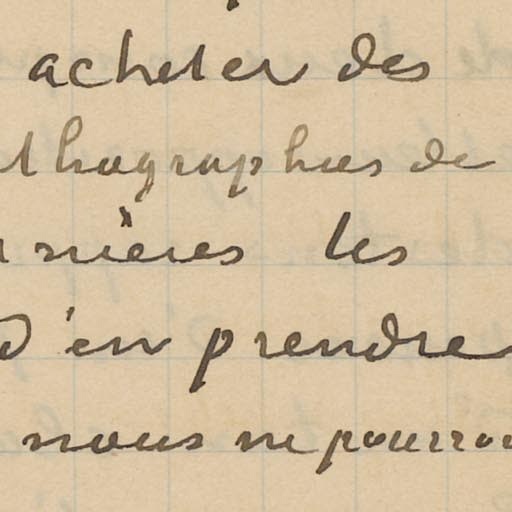 acheter des
thographies de
nières les
d'en prendre
nous ne pourron